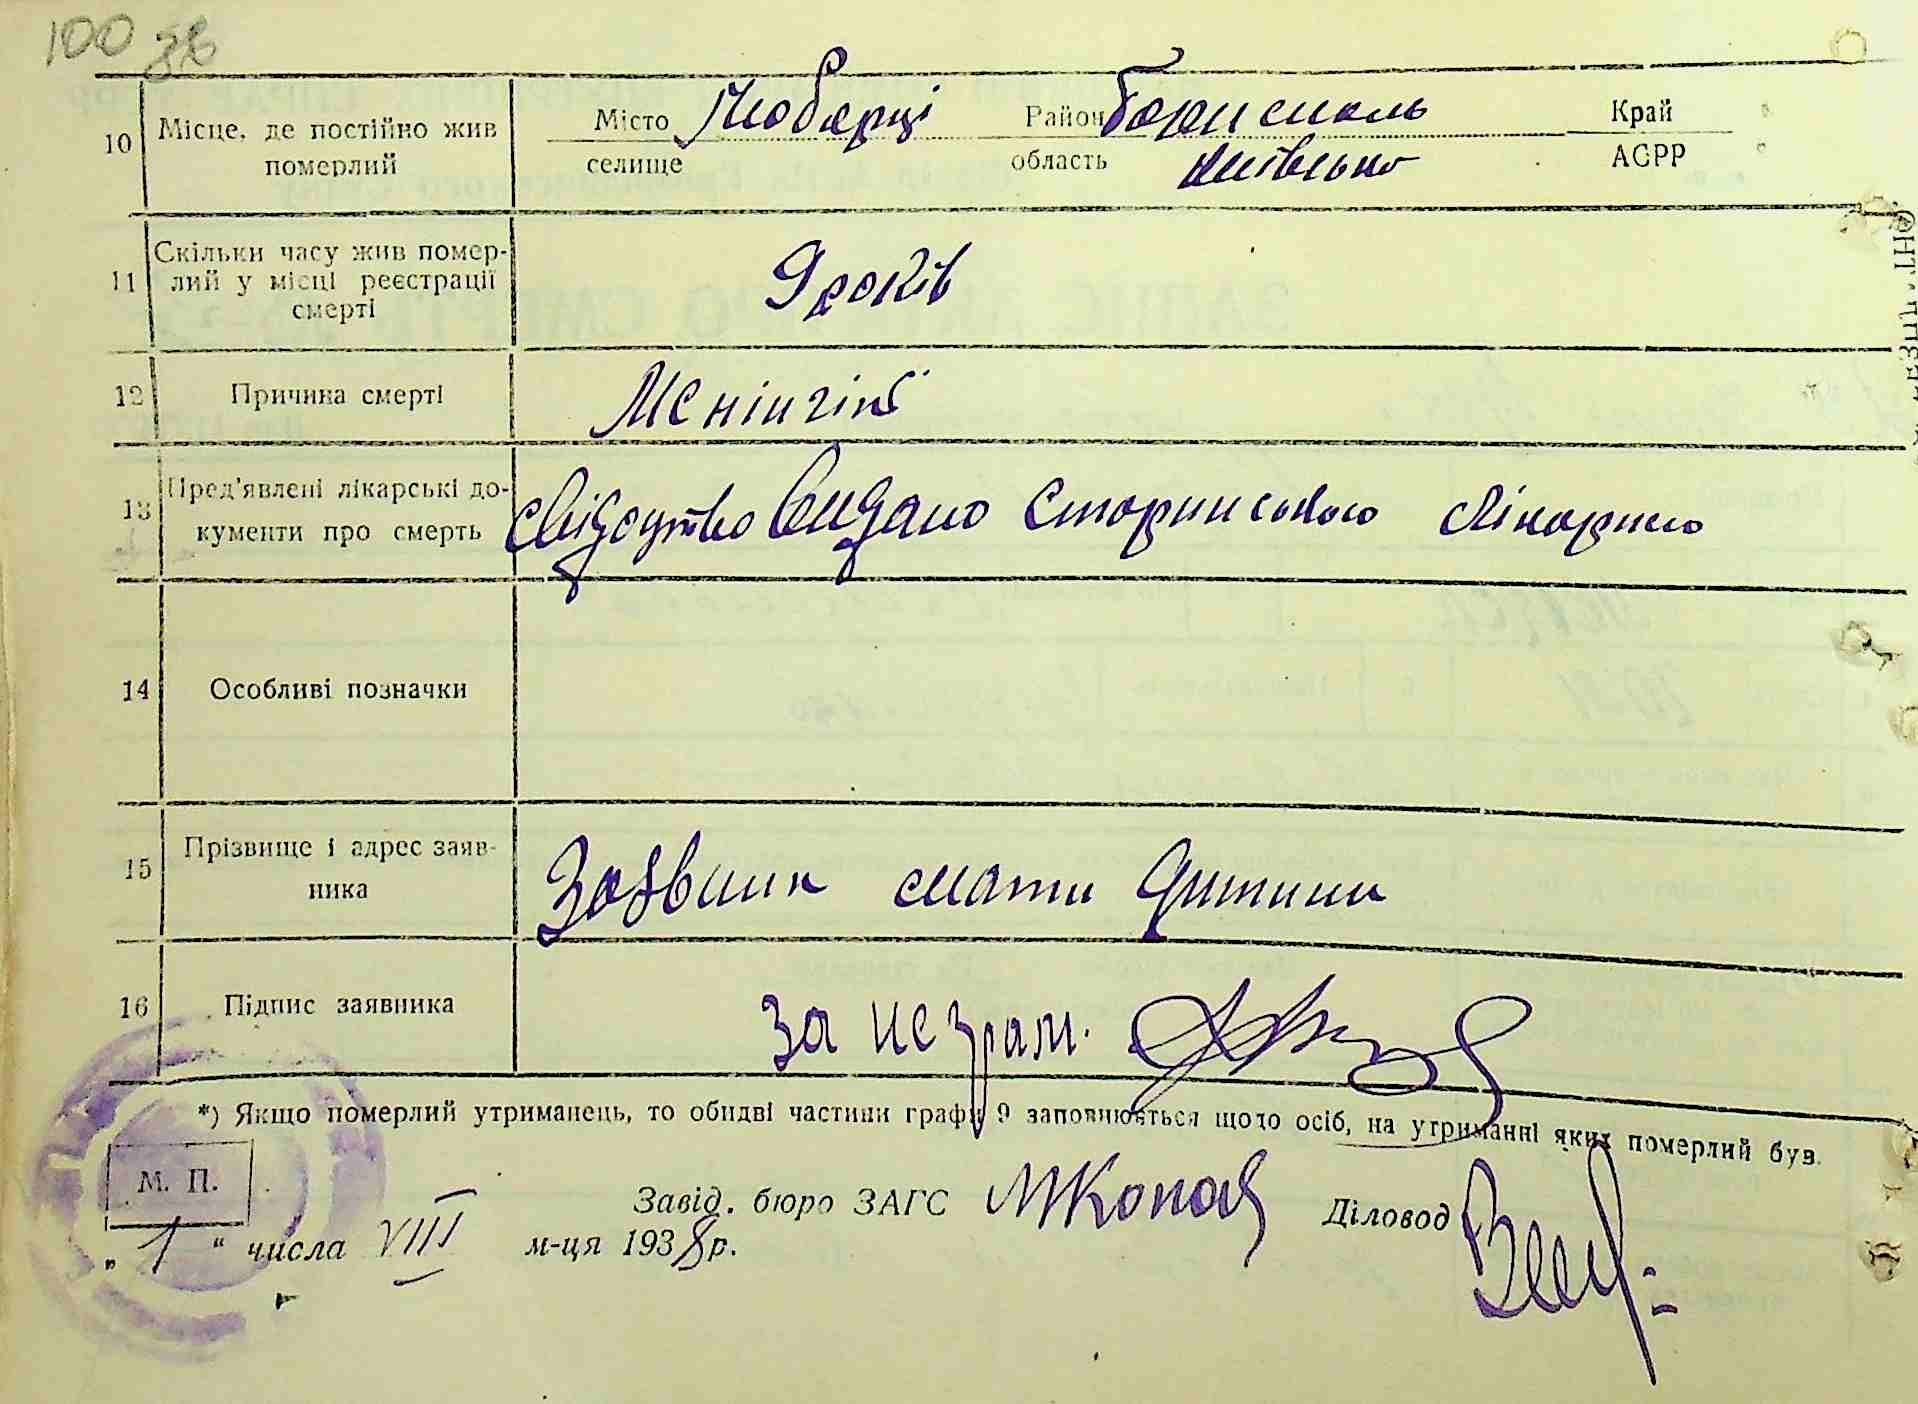 100 зв
10 Місце, де постійно жив померлий Місто селище Любарці Район Бориспіль область Київсько Край АСРР
11 Скільки часу жив помер-
лий у місці реєстрації
смерті 9 років
12 Причина смерті Менінгіт
13 Пред'явлені лікарські до-
кументи про смерть свідоцтво видано Старинською лікарнею
14 Особливі позначки
15 Прізвище і адрес заяв-
ника Заявник мати дитини
16 Підпис заявника за незрам.
*) Якщо померлий утриманець, то обидві частини графи 9 заповнюється щодо осіб, на утриманні яких померлий був.
М. П.
Завід. бюро ЗАГС Діловод
„ 1 “ числа VIII м-ця 1938 р.